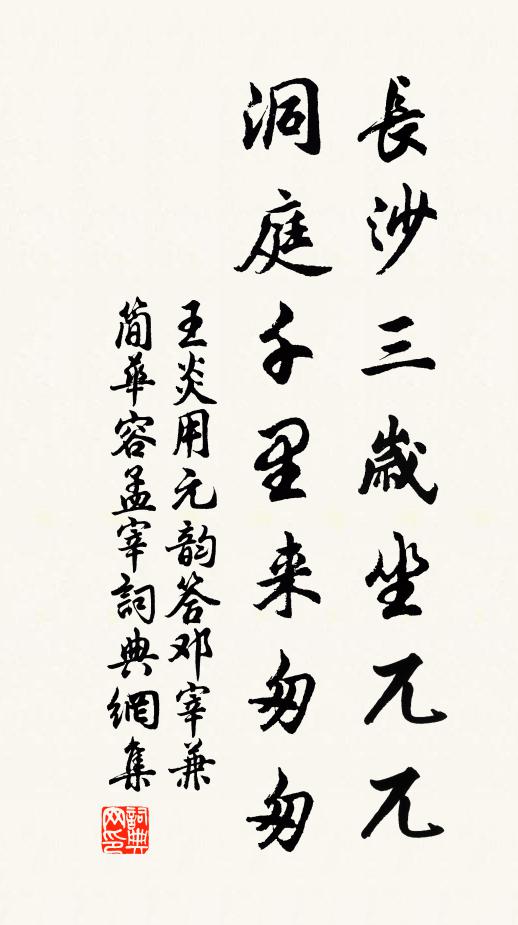 長沙三歲坐兀兀
洞庭千里来匆匆
王炎用元韵答邓宰兼
簡華容孟宰詞典網集
詞典
网印